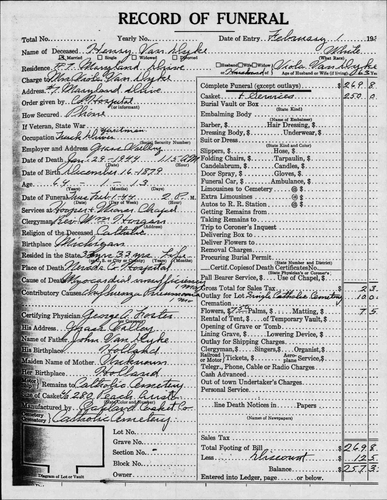 RECORD OF FUNERAL
Total No. Yearly No. Date of Entry February 1 193
Name of Deceased Henry Van Dyke White
Married Single Widowed Divorced (What Race)
Residence Maryland Drive Husband Viola Van Dyke
Charge to Mrs Viola Van Dyke Age of Husband or Wife (if living) 63 Years
Address #7 Maryland Drive
Order given by Co Hospital
How Secured Phone
If Veteran, State War
Occupation Truck Driver
Employer and Address Grass Valley
Date of Death Jan 29-1944 1:15 AM
Date of Birth December 16-1879
Age 64 1 13
(Years) (Months) (Days)
Date of Funeral Tues Feb 1-44 2 P.M.
Services at Hooper & Weaver Chapel
Clergyman Rev. Wm Horgan
Religion of the Deceased Catholic
Birthplace Michigan
Resided in the State
Place of Death Nevada Co Hospital
Cause of Death Myocardial insufficiency
Contributory Causes Influenza Pneumonia
Certifying Physician George C Foster
His Address Grass Valley
Name of Father John Van Dyke
His Birthplace Holland
Maiden Name of Mother
Her Birthplace Holland
Remains to Catholic Cemetery
Size of Casket 6280
Manufactured by Oakland Casket Co
Cemetery Catholic Cemetery
Lot No.
Grave No.
Section No.
Block No.
Owner
Diagram of Lot or Vault
Complete Funeral (except outlays) $ 269.8
& Services 250.0
Burial Vault or Box
(State Kind)
Embalming Body
(Name of Embalmer)
Barber, Hair Dressing,
Dressing Body, Underwear
Suit or Dress
(State Kind and Color)
Slippers, Hose,
Folding Chairs, Tarpaulin,
Candelabrum, Candles,
Door Spray, Gloves,
Funeral Car, Ambulance,
Limousines to Cemetery @ $
Extra Limousines @ $
Autos to R.R. Station @ $
Getting Remains from
Taking Remains to
Trip to Coroner's Inquest
Delivering Box to
Deliver Flowers to
Removal Charges
Procuring Burial Permit
(State Number and District)
Certif. Copies of Death Certificates No.
(State Physician's or Coroner's)
Pall Bearer Service, Use of Chapel,
Gross Total for Sales Tax 23
Outlay for Lot Single Catholic Cemetery 100
Cremation
Flowers, $7.50 Palms, Matting, 75
Rental of Tent, of Temporary Vault,
Opening of Grave or Tomb
Lining Grave, Lowering Device,
Outlay for Shipping Charges
Clergyman, Singers, Organist,
Railroad Motor Tickets, Aero-Service,
Telegr., Phone, Cable or Radio Charges
Cash Advanced
Out of town Undertaker's Charges
Personal Service
line Death Notices in Papers
(Names of Newspapers)
Sales Tax
Total Footing of Bill $ 269.8
Less Discount 12.5
Balance $ 257.3
Entered into Ledger, page or below.